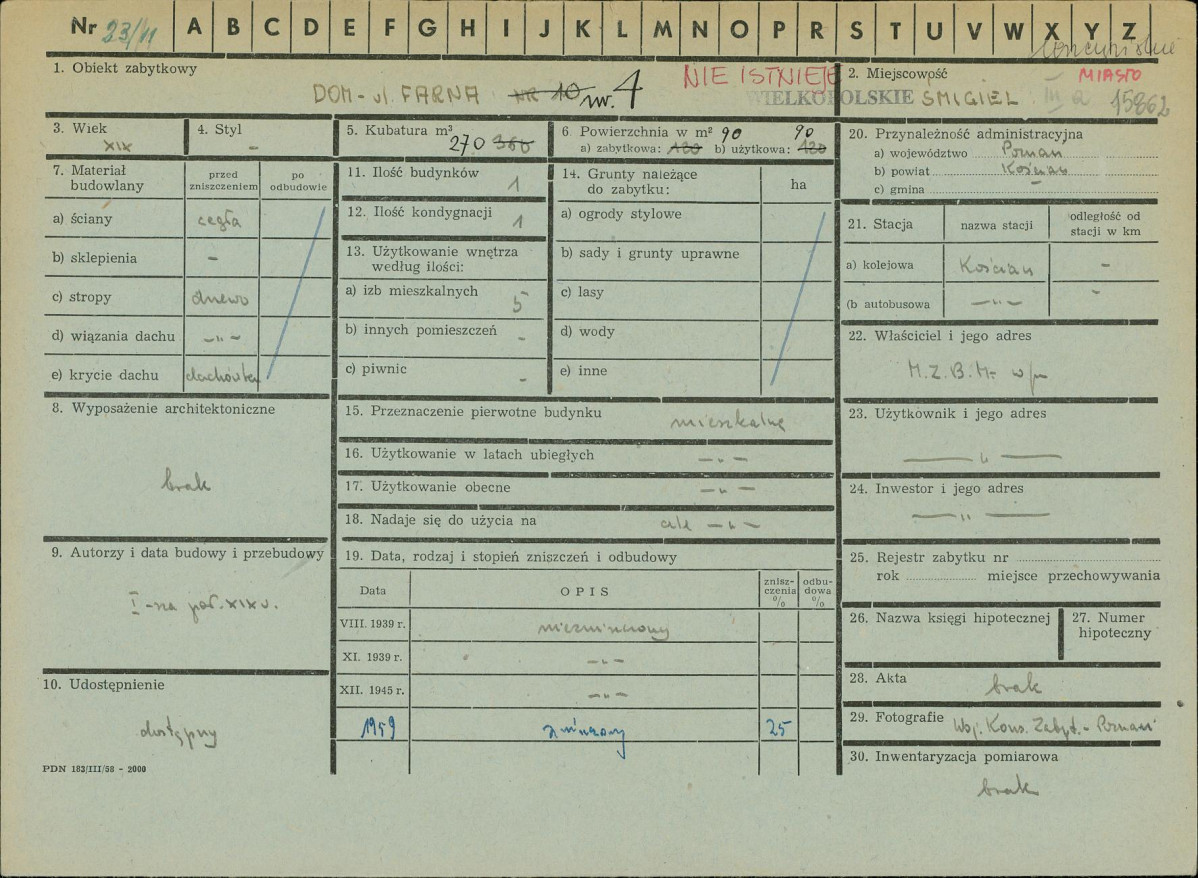 Nr 23/11 A B C D E F G H I J K L M N O P R S T U V W X Y Z
1. Obiekt zabytkowy
DOM - ul. FARNA NR 10 nr. 4
NIE ISTNIEJE
2. Miejscowość
MIASTO
WIELKOPOLSKIE ŚMIGIEL III a 15862
3. Wiek
XIX
4. Styl
-
5. Kubatura m³
270 360
6. Powierzchnia w m² 90 90
a) zabytkowa: 120 b) użytkowa: 120
7. Materiał budowlany
przed zniszczeniem
po odbudowie
a) ściany cegła
b) sklepienia -
c) stropy drewo
d) wiązania dachu -"-
e) krycie dachu dachówka
8. Wyposażenie architektoniczne
brak
9. Autorzy i data budowy i przebudowy
I-na poł. XIX w.
10. Udostępnienie
dostępny
PDN 183/III/58 - 2000
11. Ilość budynków 1
12. Ilość kondygnacji 1
13. Użytkowanie wnętrza
według ilości:
a) izb mieszkalnych 5
b) innych pomieszczeń -
c) piwnic -
14. Grunty należące
do zabytku:
ha
a) ogrody stylowe
b) sady i grunty uprawne
c) lasy
d) wody
e) inne
15. Przeznaczenie pierwotne budynku mieszkalne
16. Użytkowanie w latach ubiegłych -"-
17. Użytkowanie obecne -"-
18. Nadaje się do użycia na cele -"-
19. Data, rodzaj i stopień zniszczeń i odbudowy
Data OPIS znisz-czenia % odbu-dowa %
VIII. 1939 r. niezniszczony
XI. 1939 r. -"-
XII. 1945 r. -"-
1959 zniszczony 25
20. Przynależność administracyjna
a) województwo Poznań
b) powiat Kościan
c) gmina -
21. Stacja
nazwa stacji
odległość od stacji w km
a) kolejowa Kościan -
(b autobusowa -"- -
22. Właściciel i jego adres
M.Z.B.M. w/m
23. Użytkownik i jego adres
-"-
24. Inwestor i jego adres
-"-
25. Rejestr zabytku nr
rok miejsce przechowywania
26. Nazwa księgi hipotecznej
27. Numer
hipoteczny
28. Akta
brak
29. Fotografie Woj. Kons. Zabyt. - Poznań
30. Inwentaryzacja pomiarowa
brak